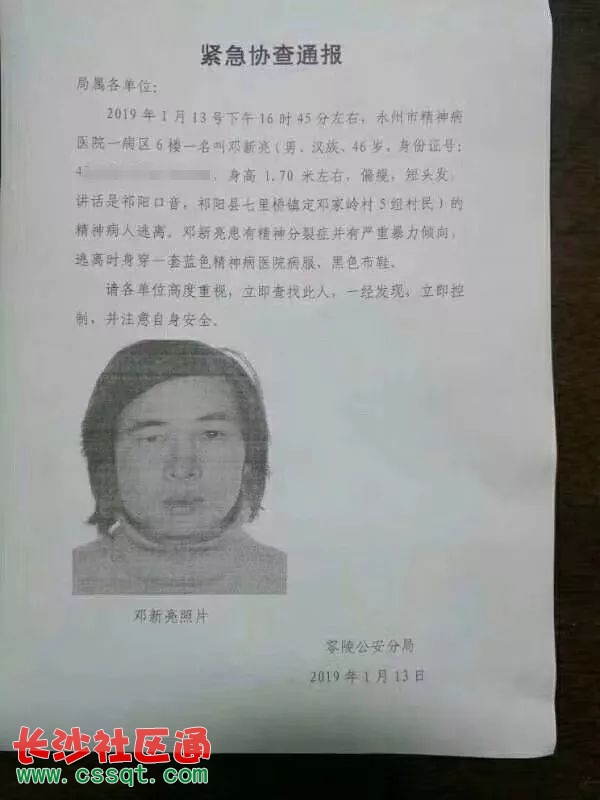 紧急协查通报
局属各单位：
2019年1月13号下午16时45分左右，永州市精神病
医院一病区6楼一名叫邓新亮（男、汉族、46岁，身份证号：
4 ，身高1.70米左右，偏瘦，短头发，
讲话是祁阳口音，祁阳县七里桥镇定邓家岭村5组村民）的
精神病人逃离。邓新亮患有精神分裂症并有严重暴力倾向，
逃离时身穿一套蓝色精神病医院病服、黑色布鞋。
请各单位高度重视，立即查找此人，一经发现，立即控
制，并注意自身安全。
邓新亮照片
零陵公安分局
2019年1月13日
长沙社区通
www.cssqt.com